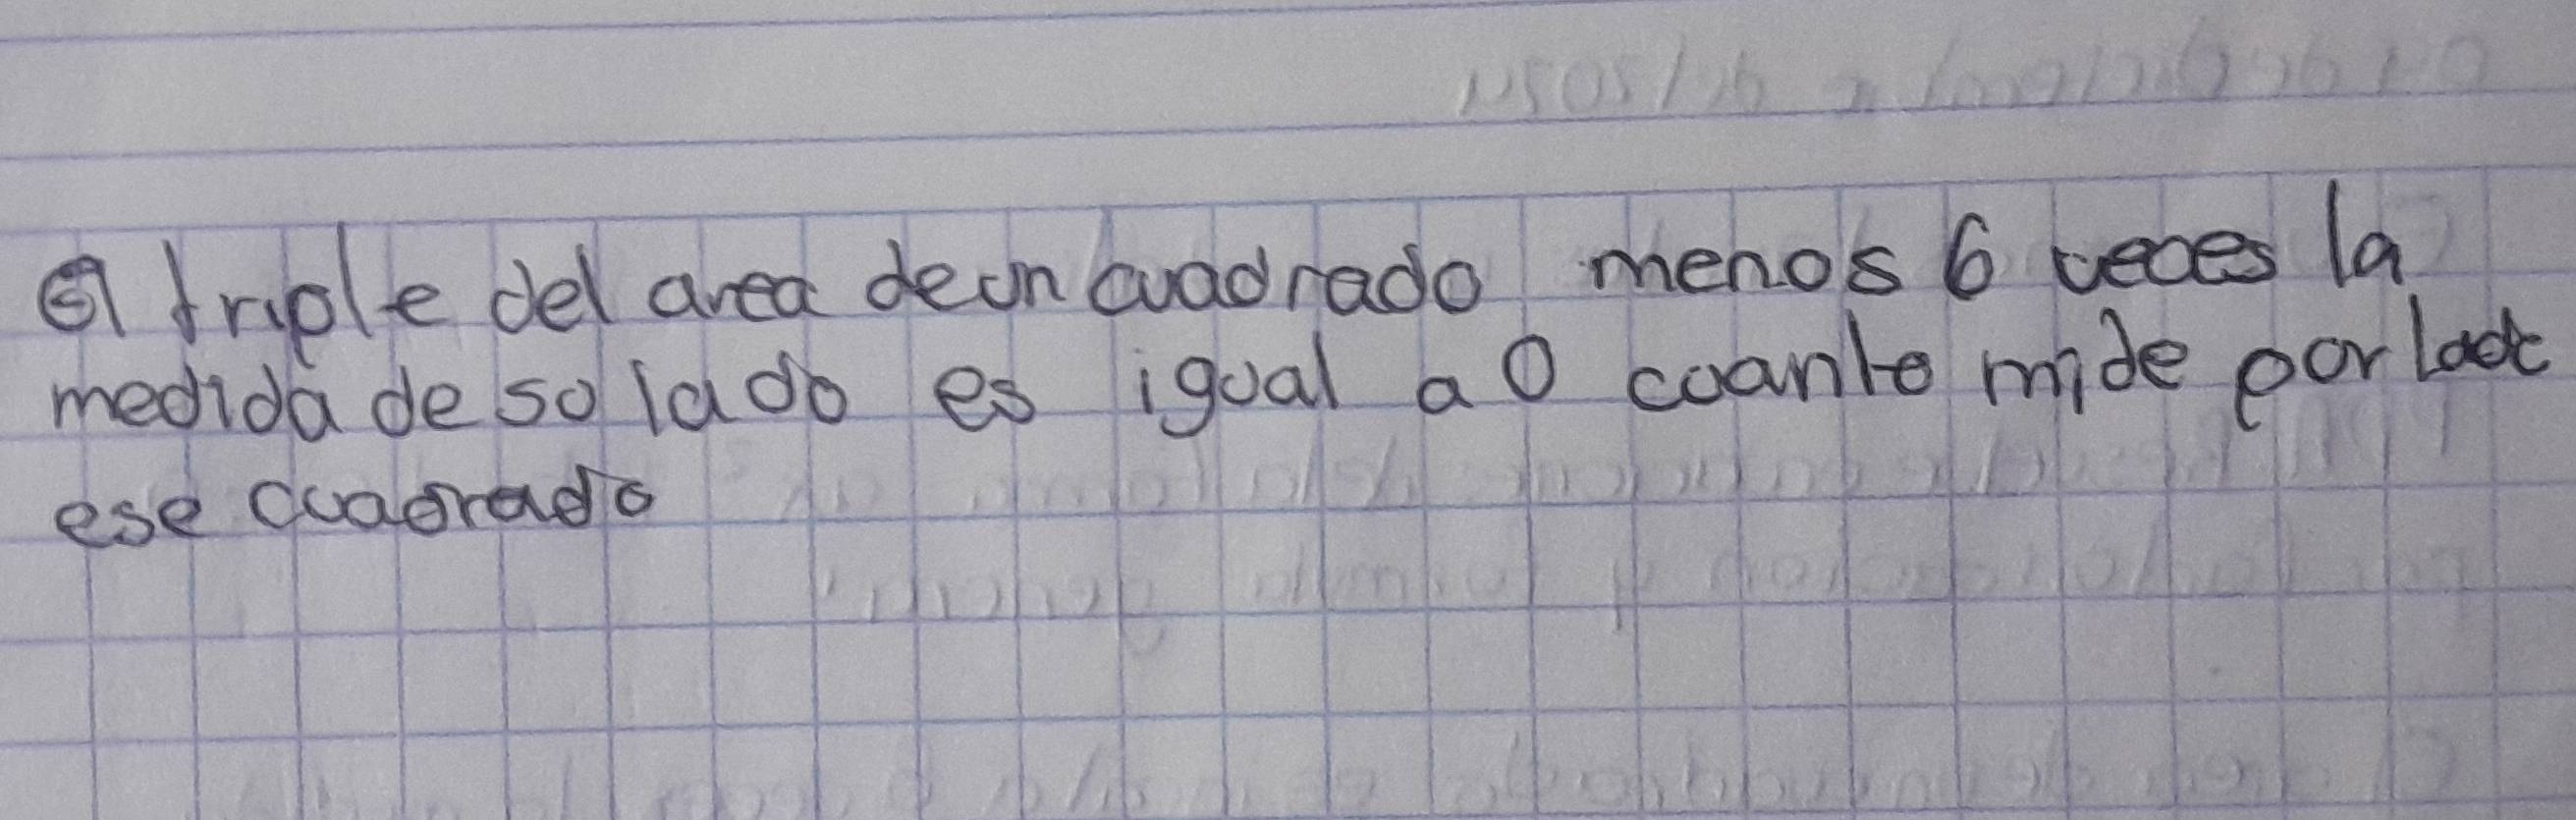 el triple del area de un cuadrado menos 6 veces la
medida de so lado es igual a 0 cuanto mide por lado
ese cuadrado